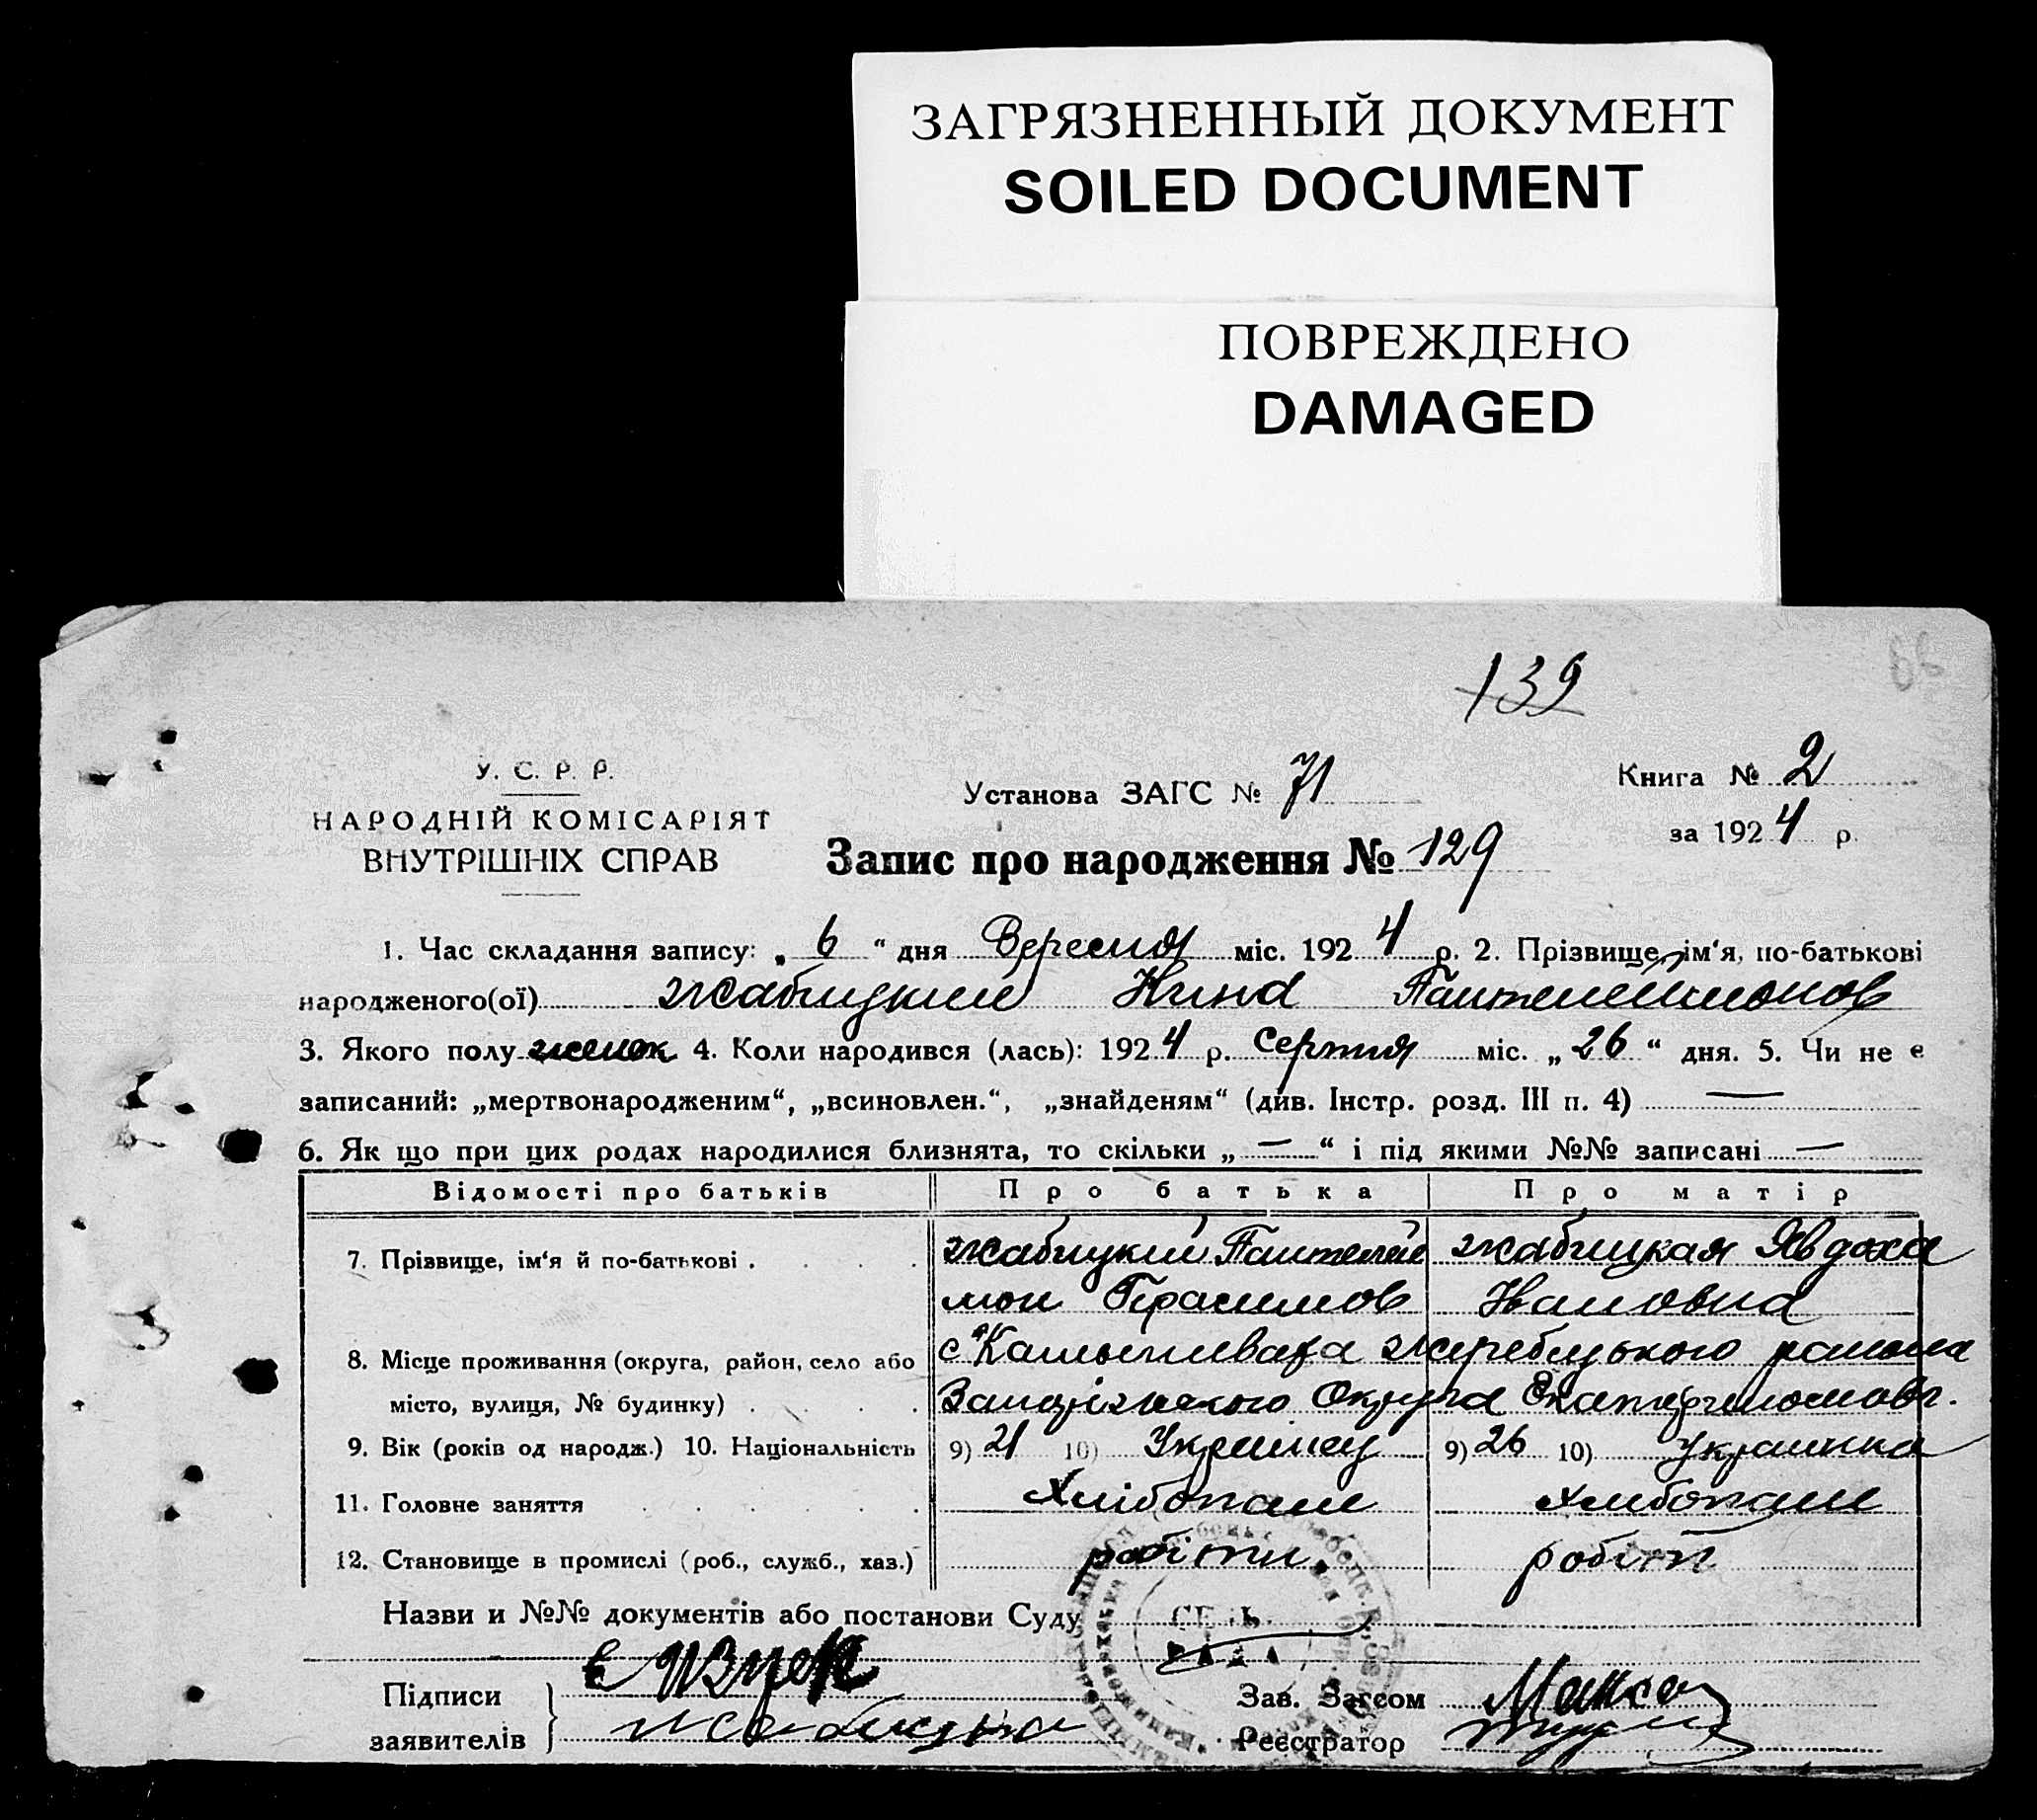 ЗАГРЯЗНЕННЫЙ ДОКУМЕНТ
SOILED DOCUMENT
ПОВРЕЖДЕНО
DAMAGED
139
У. С. Р. Р.
НАРОДНІЙ КОМІСАРІЯТ
ВНУТРІШНІХ СПРАВ
Установа ЗАГС № 71
Книга № 2
за 1924 р.
Запис про народження № 129
1. Час складання запису: „ 6 “ дня Вересня міс. 1924 р. 2. Прізвище, ім‘я, по-батькові
народженого(ої) Жабицкий Нина Пантелеймонов
3. Якого полу женск 4. Коли народився (лась): 1924 р. Серпня міс. „ 26 “ дня. 5. Чи не є
записаний: „мертвонародженим“, „всиновлен.“, „знайденям“ (див. Інстр. розд. III п. 4) —
6. Як що при цих родах народилися близнята, то скільки „ — “ і під якими №№ записані —
Відомості про батьків Про батька Про матір
7. Прізвище, ім‘я й по-батькові . Жабицкий Пантелей Жабицкая Явдоха
мон Герасимов Ивановна
8. Місце проживання (округа, район, село або с Камышеваха Жеребецького района
місто, вулиця, № будинку) . Запоріжского Округа Екатеринославс.
9. Вік (років од народж.) 10. Національність 9) 21 10) Украинец 9) 26 10) Украинка
11. Головне заняття Хлібопаш Хлибопаш
12. Становище в промислі (роб., служб., хаз.) робітн. робітн
Назви и №№ документів або постанови Суду
СЕЛЬ.
РАДА
Підписи
Зав. Загсом
заявителів
Реєстратор